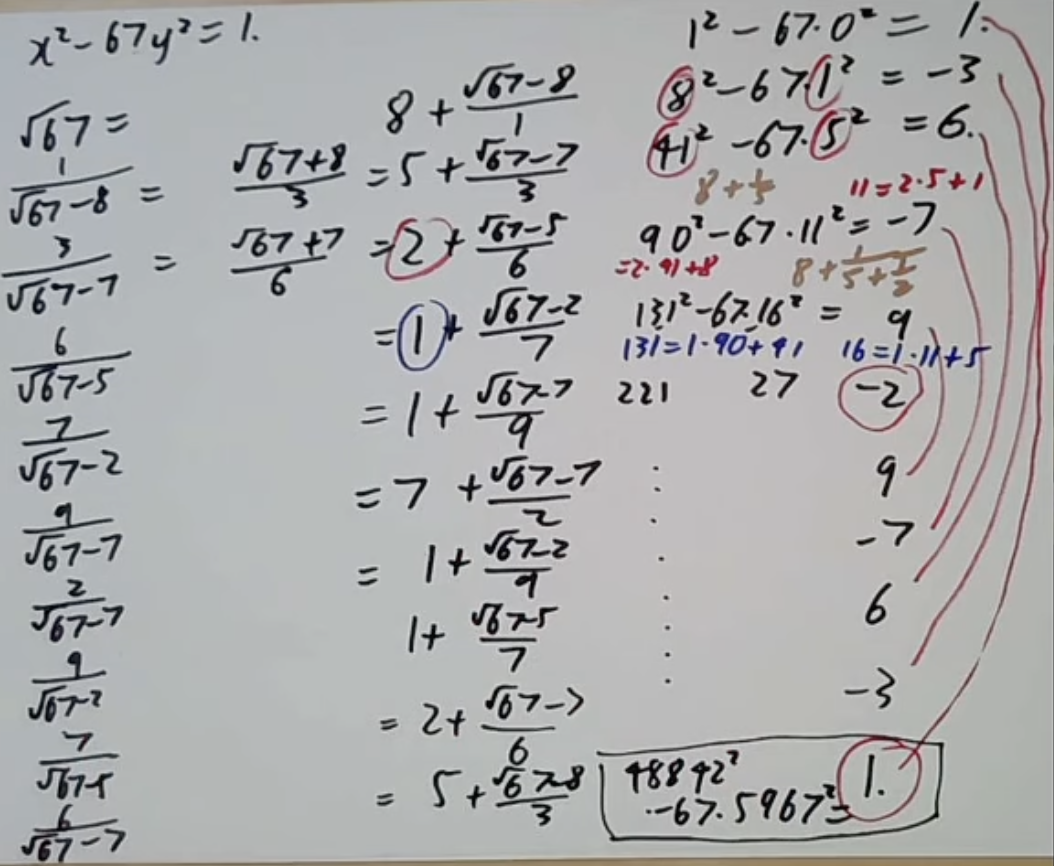 x² - 67y² = 1.
√67 = 8 + (√67-8)/1
1/(√67-8) = (√67+8)/3 = 5 + (√67-7)/3
3/(√67-7) = (√67+7)/6 = 2 + (√67-5)/6
6/(√67-5) = 1 + (√67-2)/7
7/(√67-2) = 1 + (√67-7)/9
9/(√67-7) = 7 + (√67-7)/2
2/(√67-7) = 1 + (√67-2)/9
9/(√67-2) 1 + (√67-5)/7
7/(√67-5) = 2 + (√67-7)/6
6/(√67-7) = 5 + (√67-8)/3
1² - 67·0² = 1.
8² - 67·1² = -3
41² - 67·5² = 6.
8 + 1/5 11 = 2·5+1
90² - 67·11² = -7
=2·41+8 8 + 1/(5 + 1/2)
131² - 67·16² = 9
131 = 1·90 + 41 16 = 1·11+5
221 27 -2
9
-7
6
-3
48842²
-67·5967² = 1.